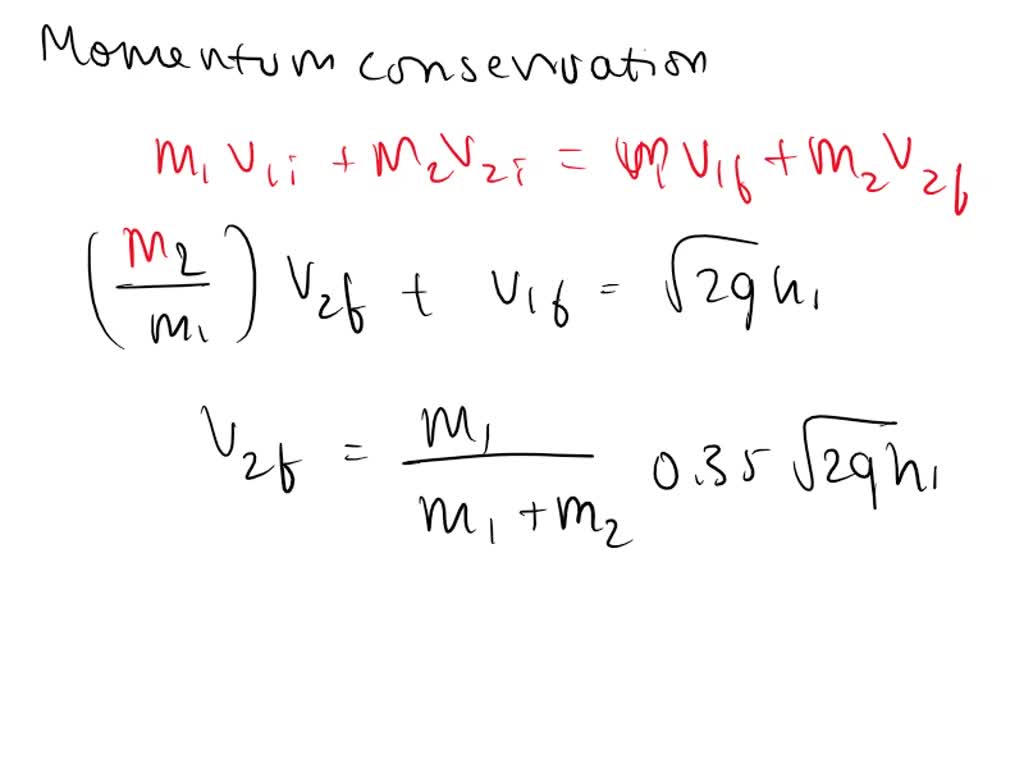 Momentum conservation
m₁ v₁ᵢ + m₂v₂ᵢ = m v₁f + m₂v₂f
(m₂/m₁) v₂f + v₁f = √2gh₁
v₂f = m₁/(m₁+m₂) 0.35 √2gh₁